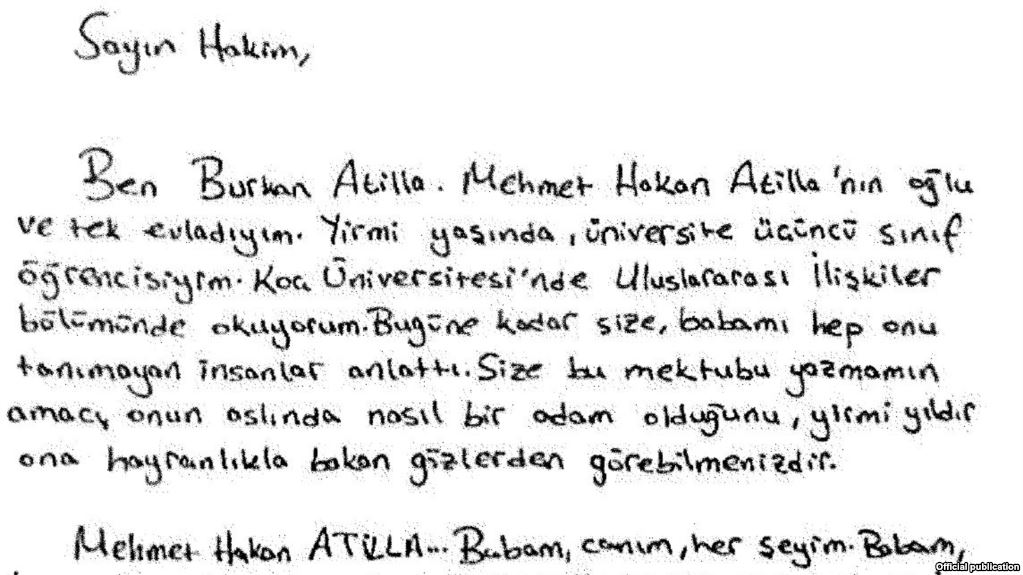 Sayın Hakim,
Ben Burhan Atilla. Mehmet Hakan Atilla'nın oğlu
ve tek evladıyım. Yirmi yaşında, üniversite üçüncü sınıf
öğrencisiyim. Koç Üniversitesi'nde Uluslararası İlişkiler
bölümünde okuyorum. Bugüne kadar size, babamı hep onu
tanımayan insanlar anlattı. Size bu mektubu yazmamın
amacı, onun aslında nasıl bir adam olduğunu, yirmi yıldır
ona hayranlıkla bakan gözlerden görebilmenizdir.
Mehmet Hakan ATİLLA... Babam, canım, her şeyim. Babam,
Official publication